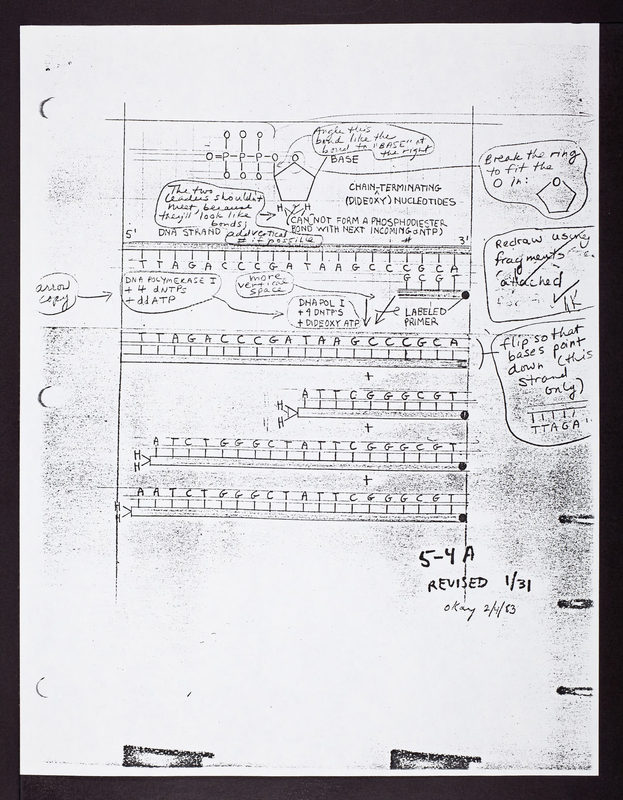 Angle this
bond like the
bond to "BASE" at
the right
O=P-P-P-O
O O O
BASE
Break the ring
to fit the
O in:
O
CHAIN-TERMINATING
(DIDEOXY) NUCLEOTIDES
The two
leaders shouldn't
meet, because
they'll look like
bonds;
add vertical
# if possible
H H
CAN NOT FORM A PHOSPHODIESTER
BOND WITH NEXT INCOMING dNTP)
5'
DNA STRAND
#
3'
TTAGACCCGATAAGCCCGCA
GCGT
Redraw using
fragments
attached
arrow
copy
DNA POLYMERASE I
+ 4 dNTPS
+ ddATP
more
vertical
space
DNA POL I
+ 4 DNTPS
+ DIDEOXY ATP
LABELED
PRIMER
flip so that
bases point
down (this
strand
only)
TTAGA
TTAGACCCGATAAGCCCGCA
+
ATTCGGGCGT
H
H
+
ATCTGGGCTATTCGGGCGT
H
H
+
AATCTGGGCTATTCGGGCGT
H
H
5-4A
REVISED 1/31
okay 2/4/83